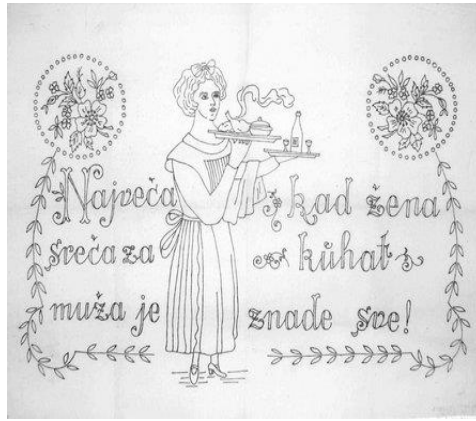 Največa
sreča za
muža je
kad žena
kuhat
znade sve!